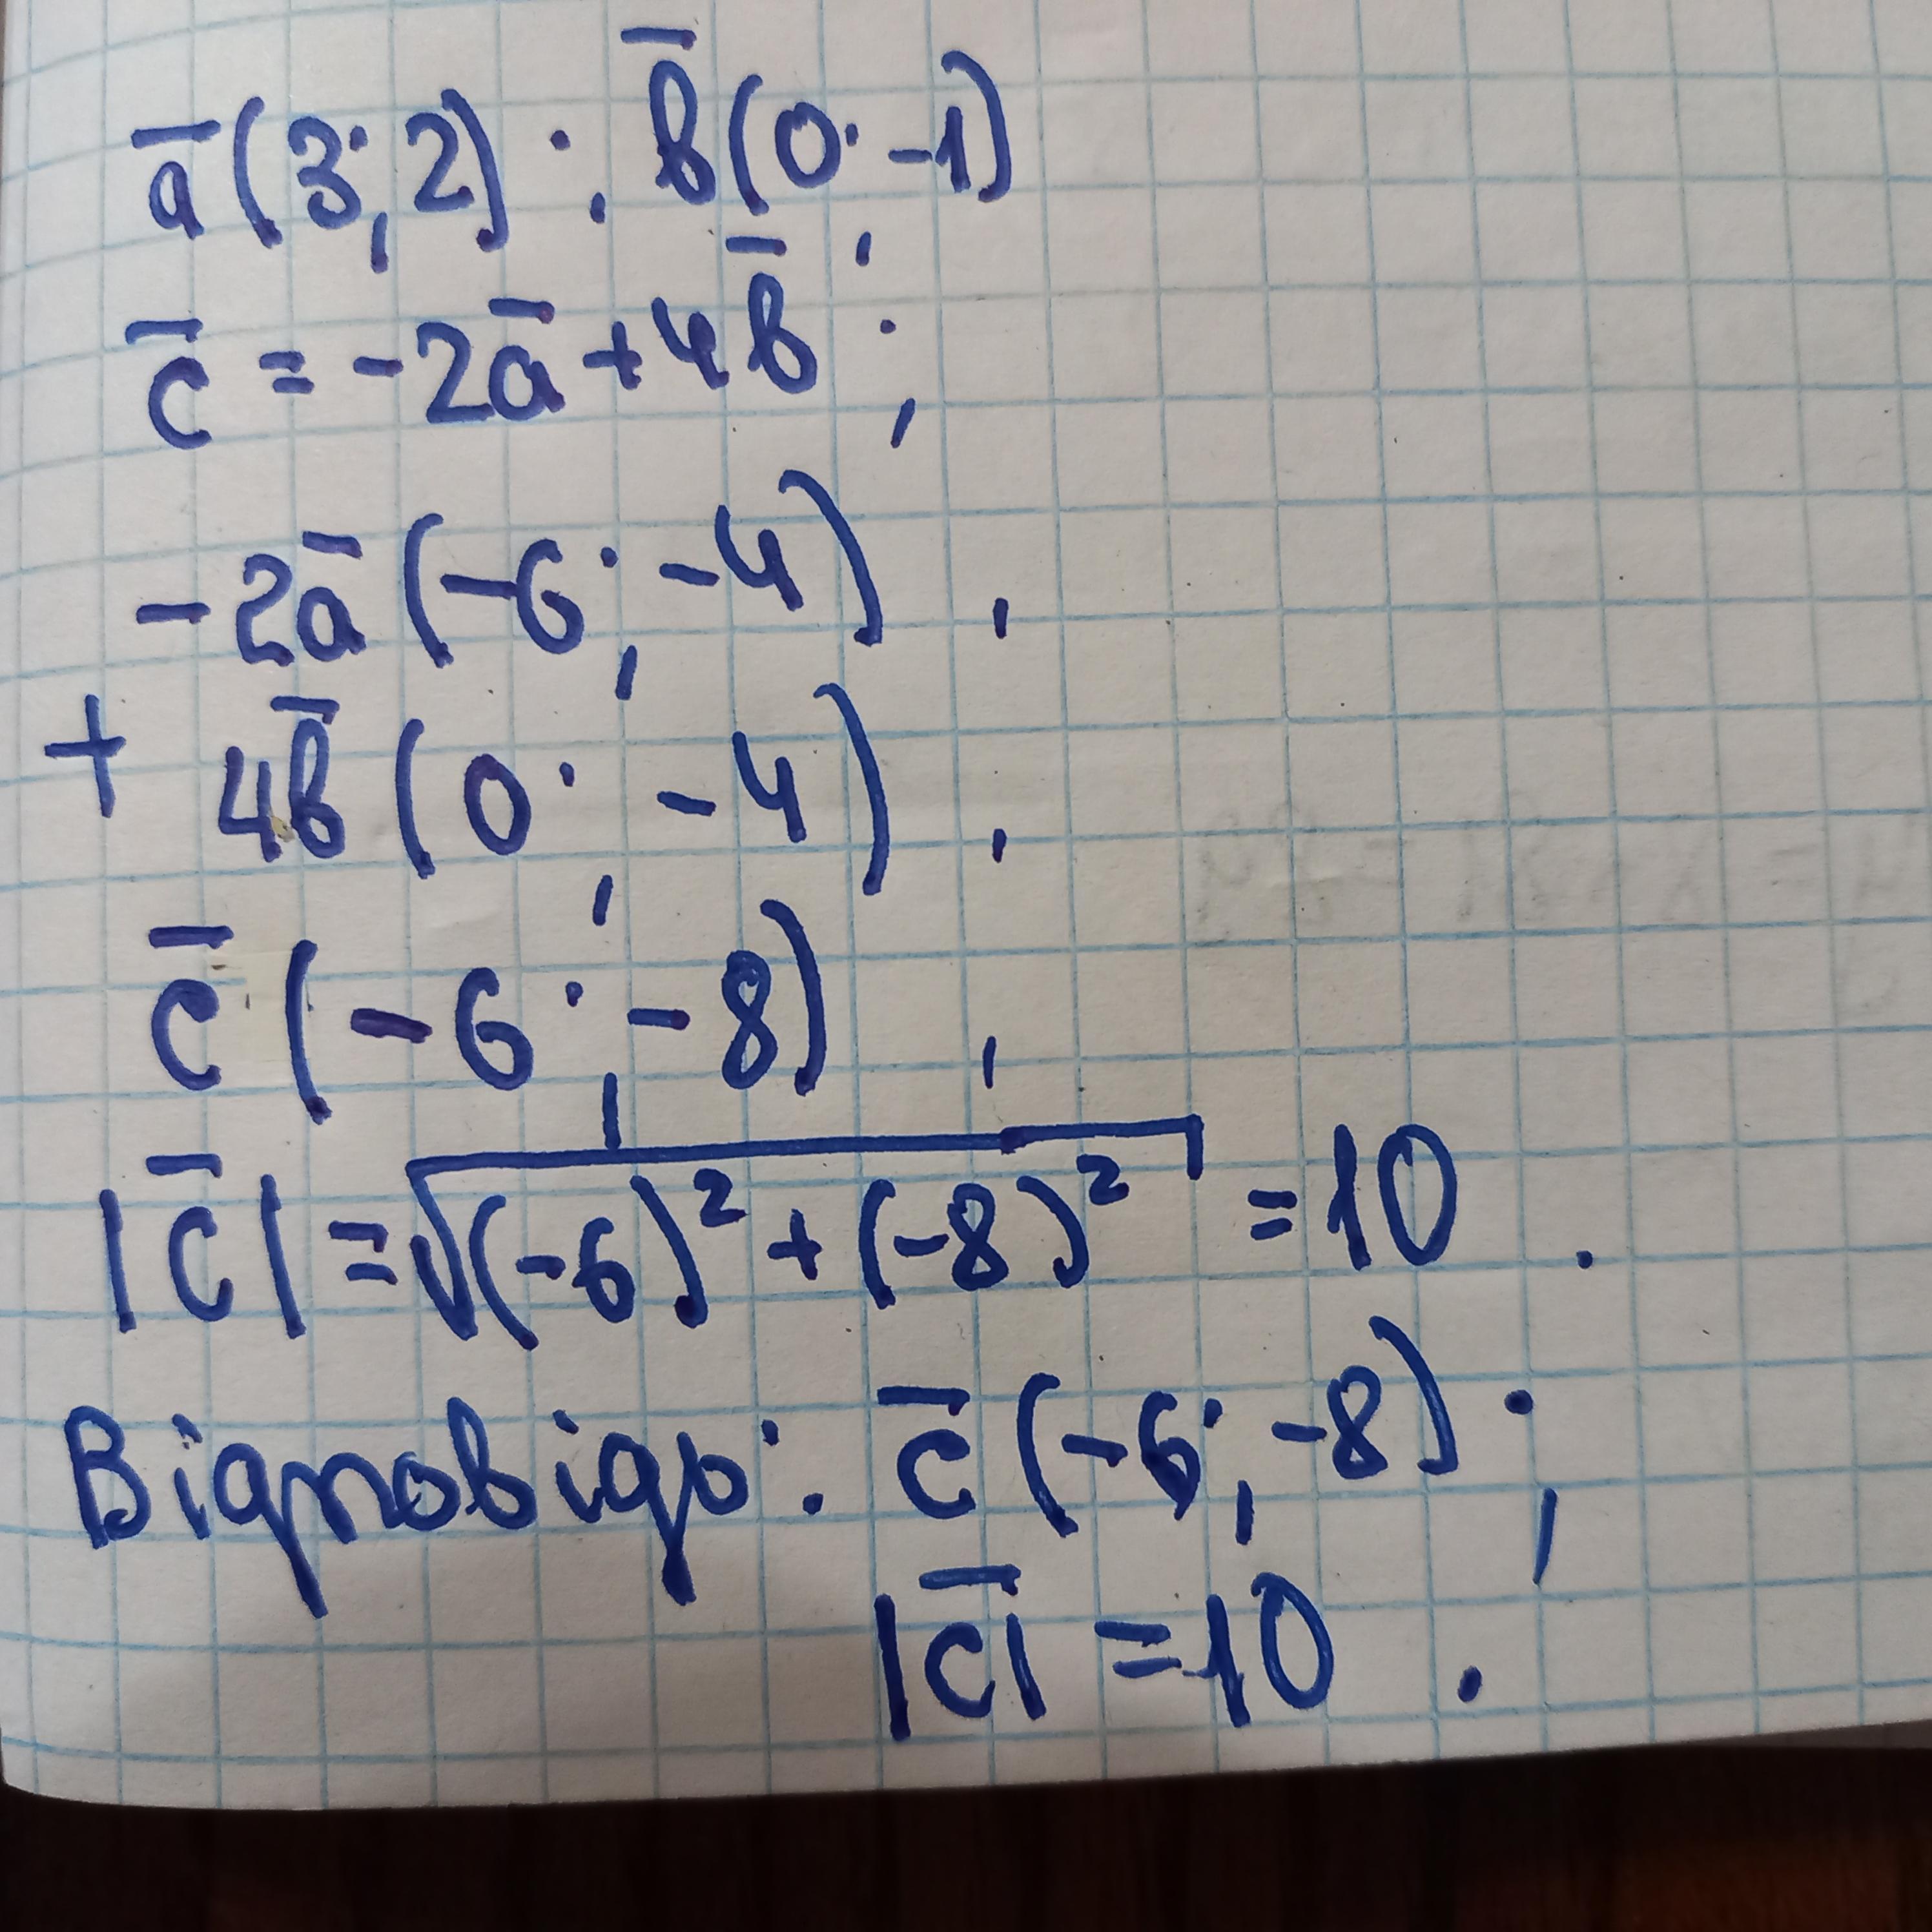 a̅ (3; 2) ; b̅ (0; -1)
c̅ = -2a̅ + 4b̅ ;
-2a̅ (-6; -4) ,
+ 4b̅ (0; -4) ,
c̅ (-6; -8) ,
|c̅| = √((-6)² + (-8)²) = 10 .
Відповідь: c̅ (-6; -8) ;
|c̅| = 10 .